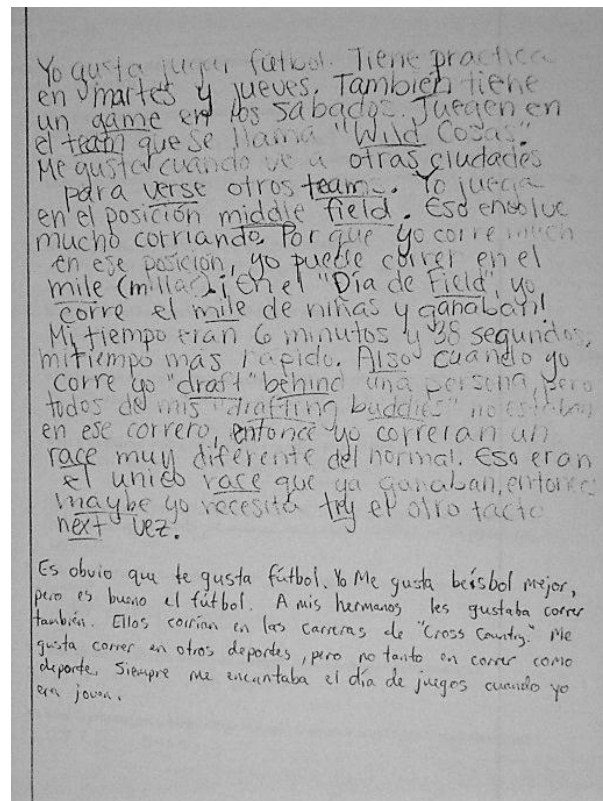 Yo gusta jugar fútbol. Tiene practica
en martes y jueves. También tiene
un game en los sábados. Juegen en
el team que se llama "Wild Cosas".
Me gusta cuando ve a otras ciudades
para verse otros teams. Yo juega
en el posición middle field. Eso
mucho corriando. Por que yo corre much
en ese posicion, yo puede correr en el
mile (milla). ¡En el "Día de Field", yo
corre el mile de niñas y ganaban!
Mi tiempo eran 6 minutos y 38 segundos,
mi tiempo más rapido. Also cuando yo
corre yo "draft" behind una persona, pero
todos de mis "drafting buddies" no estaban
en ese correro, entonce yo correran un
race muy diferente del normal. Eso eran
el unico race que yo ganaban, entonces
maybe yo necesita try el otro tacto
next vez.
Es obvio que te gusta fútbol. Yo Me gusta beísbol mejor,
pero es bueno el fútbol. A mis hermanos les gustaba correr
también. Ellos corrían en las carreras de "Cross Country." Me
gusta correr en otros deportes, pero no tanto en correr como
deporte. Siempre me encantaba el día de juegos cuando yo
era joven.